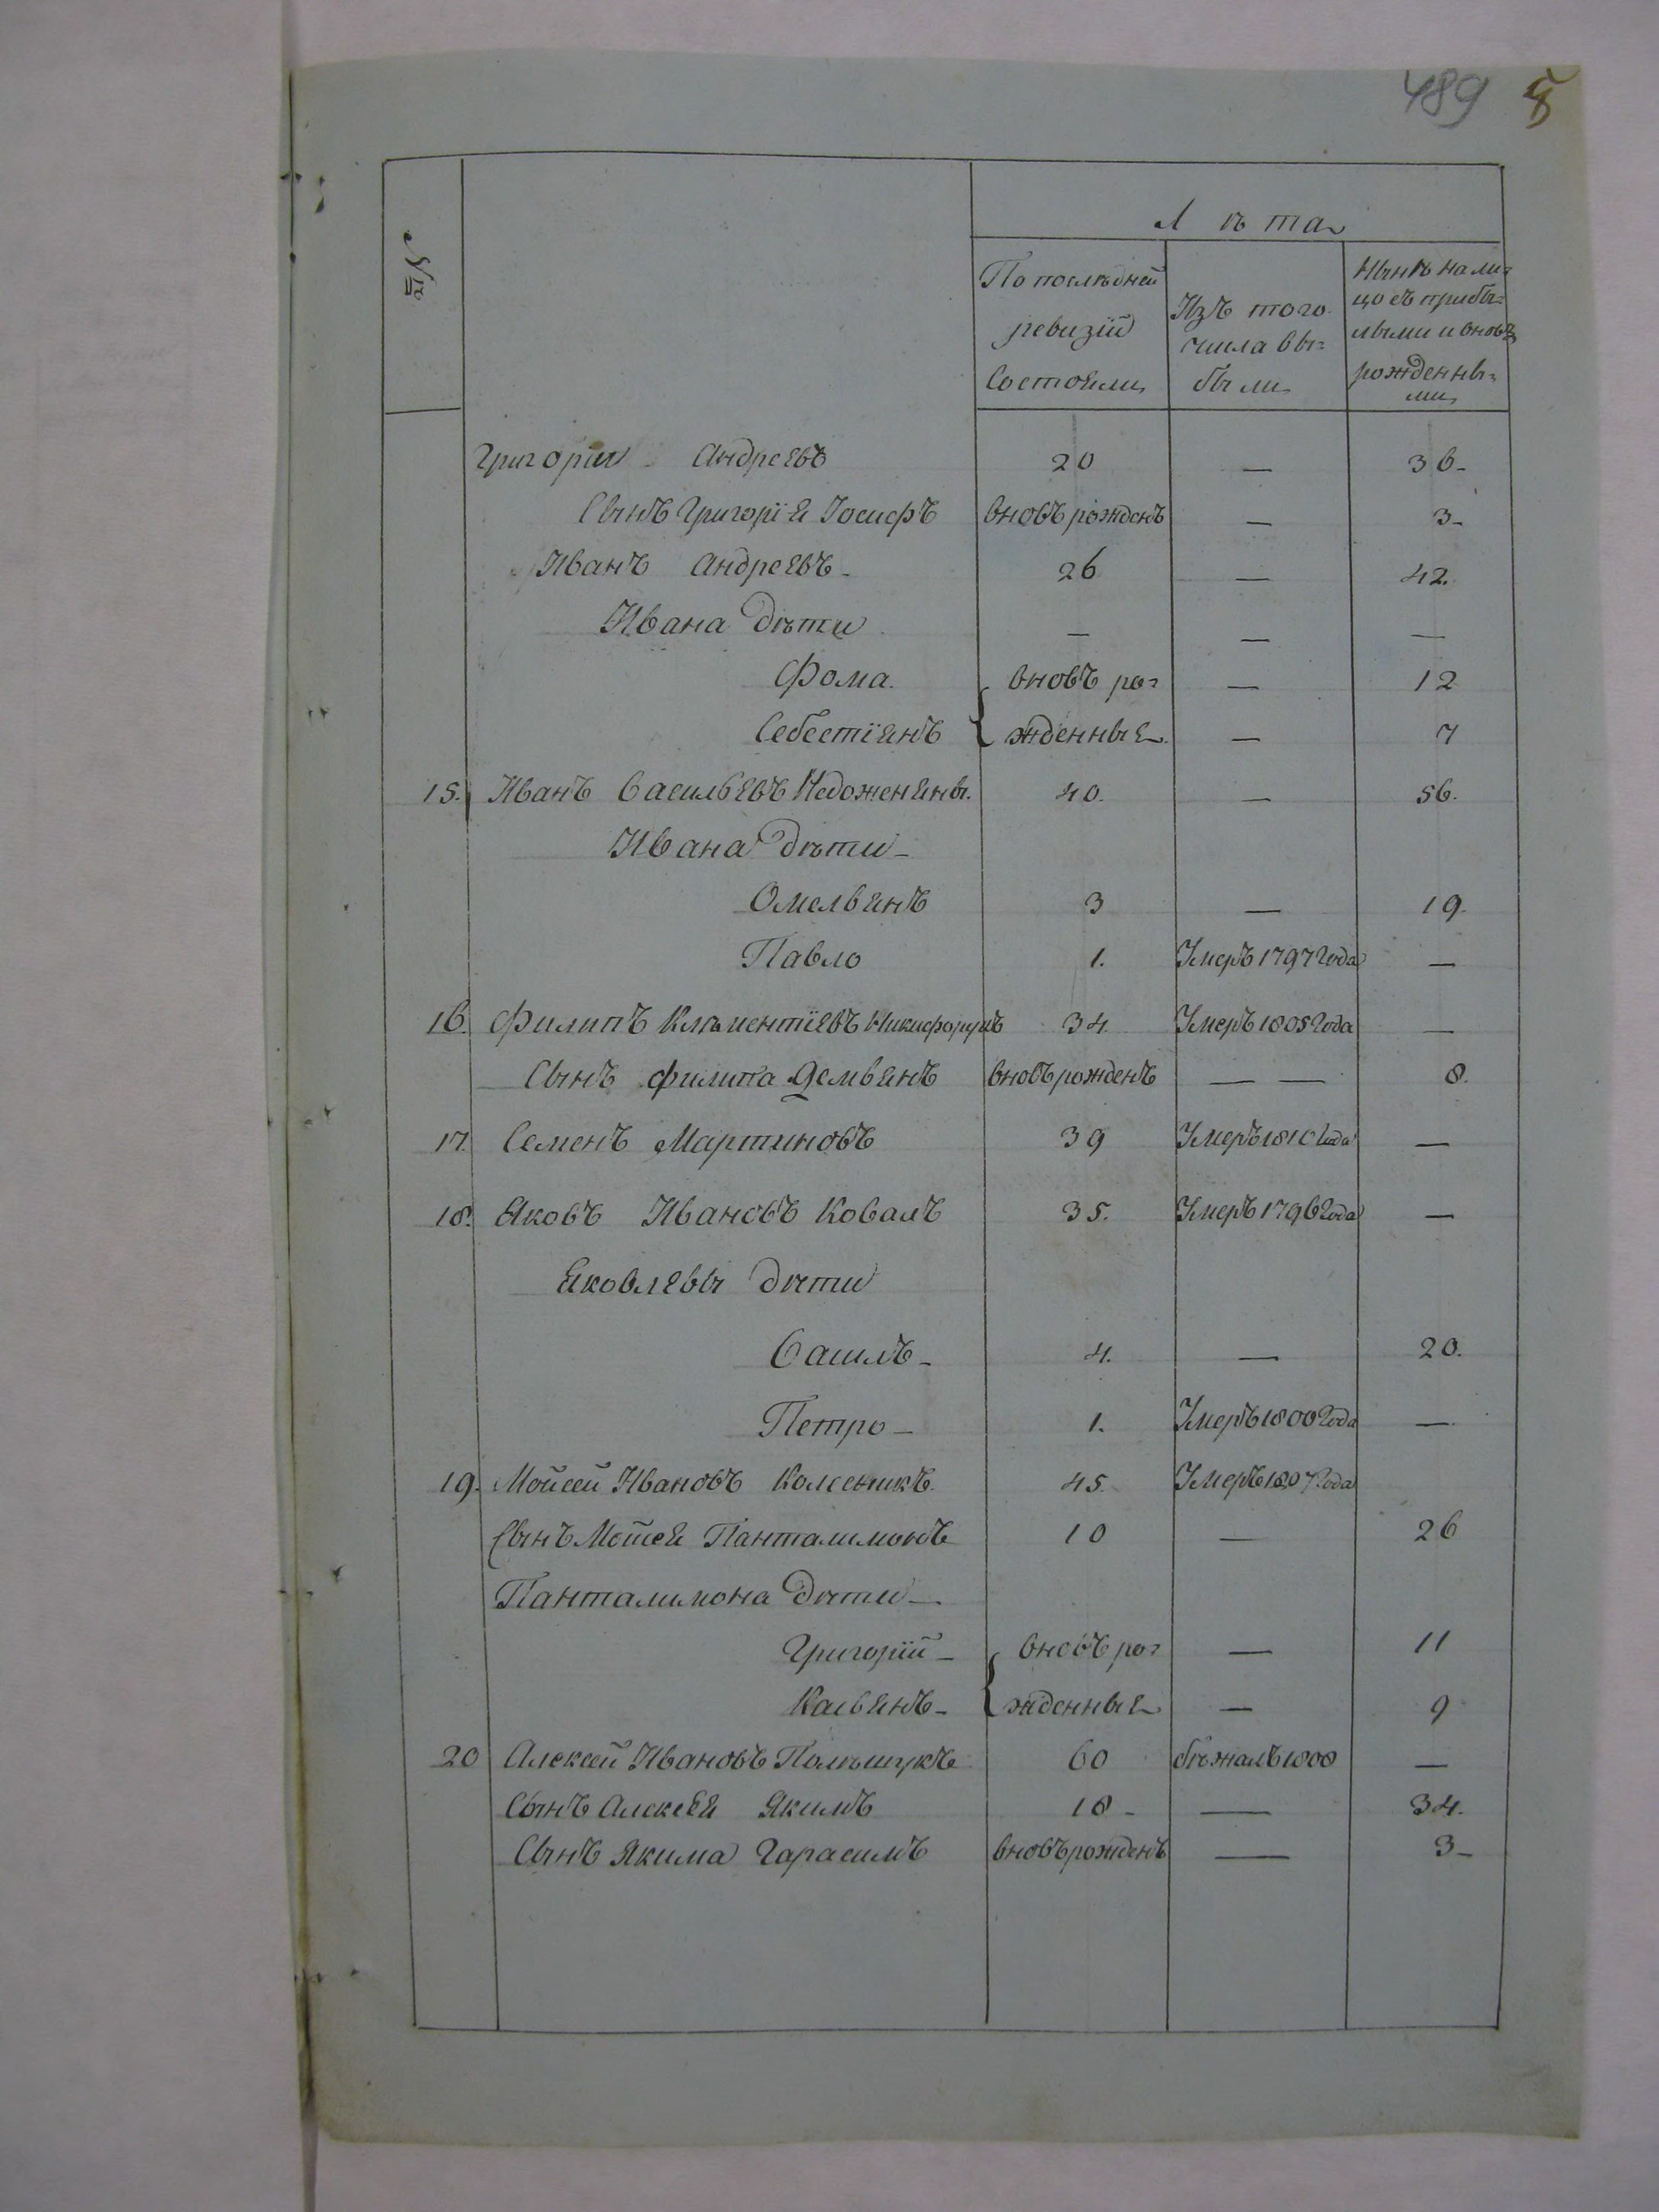 489 8
№
Лѣта
По послѣдней ревизіи состояли
Изъ того числа вы=были
Нынѣ нали=цо съ прибы=лыми и вновь рожденны=ми
Григорій Андреевъ 20 — 36-
Сынъ Григорія Іосифъ вновъ рожденъ — 3-
Иванъ Андреевъ- 26 — 42.
Ивана дѣти — — —
Фома. вновъ ро= — 12
Себестіянъ жденныя — 7
15. Иванъ Васильевъ 40. — 56.
Ивана дѣти-
Омельянъ 3 — 19.
Павло 1. Умеръ 1797 Года —
16. Филипъ Клѣментіевъ 34 Умеръ 1805 Года —
Сынъ филипа Демьянъ вновъ рожденъ — — 8.
17. Семенъ Мартиновъ 39 Умеръ 1810 Года —
18. Яковъ Ивановъ Ковалъ 35. Умеръ 1796 Года —
Яковлевы дѣти
Василъ- 4. — 20.
Петро- 1. Умеръ 1800 Года —
19. Мойсей Ивановъ Колесникъ 45. Умеръ 1807 Года
Сынъ Мойсея Панталимонъ 10 — 26
Панталимона дѣти-
Григорій- вновъ ро= — 11
Касьянъ- жденныя — 9
20 Алексей Ивановъ Полѣшукъ 60 бѣжалъ 1808 —
Сынъ Алексея Якимъ 18- — 34.
Сынъ Якима Гарасимъ вновъ рожденъ — 3-